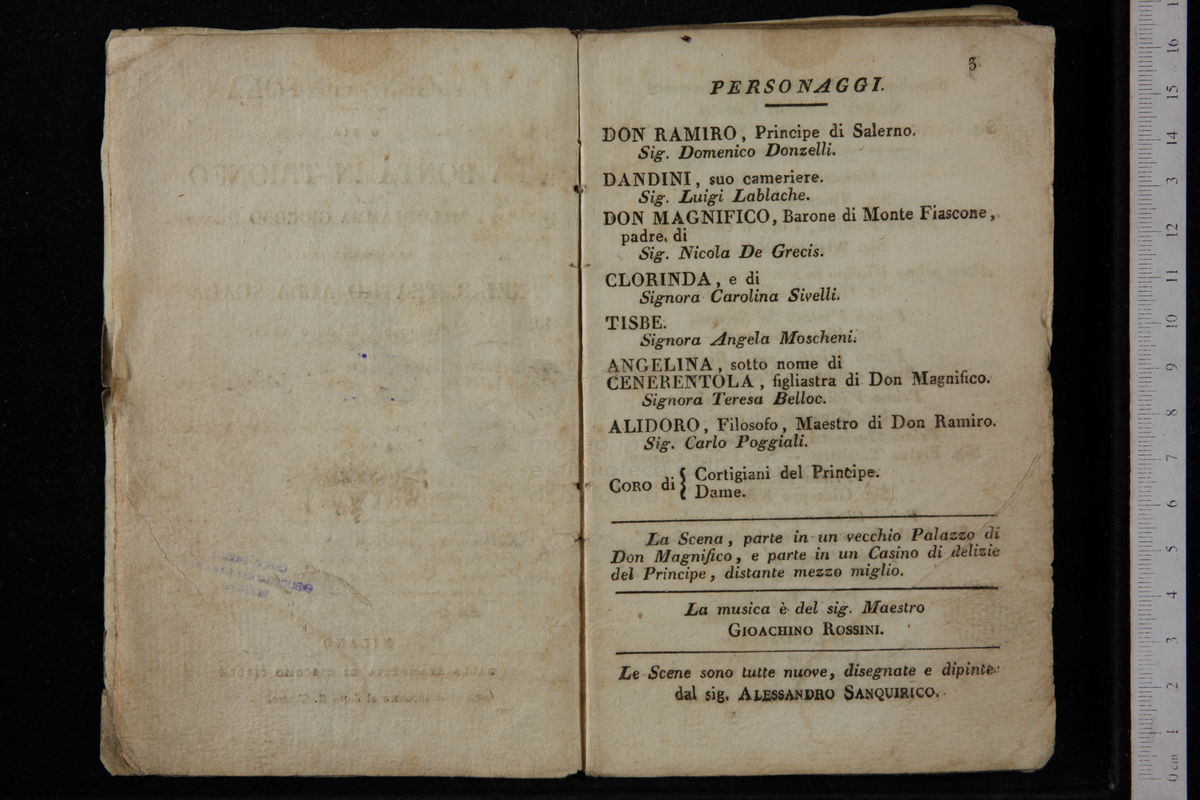 3
PERSONAGGI.
DON RAMIRO, Principe di Salerno.
Sig. Domenico Donzelli.
DANDINI, suo cameriere.
Sig. Luigi Lablache.
DON MAGNIFICO, Barone di Monte Fiascone,
padre di
Sig. Nicola De Grecis.
CLORINDA, e di
Signora Carolina Sivelli.
TISBE.
Signora Angela Moscheni.
ANGELINA, sotto nome di
CENERENTOLA, figliastra di Don Magnifico.
Signora Teresa Belloc.
ALIDORO, Filosofo, Maestro di Don Ramiro.
Sig. Carlo Poggiali.
CORO di { Cortigiani del Principe.
Dame.
La Scena, parte in un vecchio Palazzo di
Don Magnifico, e parte in un Casino di delizie
del Principe, distante mezzo miglio.
La musica è del sig. Maestro
GIOACHINO ROSSINI.
Le Scene sono tutte nuove, disegnate e dipinte
dal sig. ALESSANDRO SANQUIRICO.
0 cm 1 2 3 4 5 6 7 8 9 10 11 12 3 14 15 16